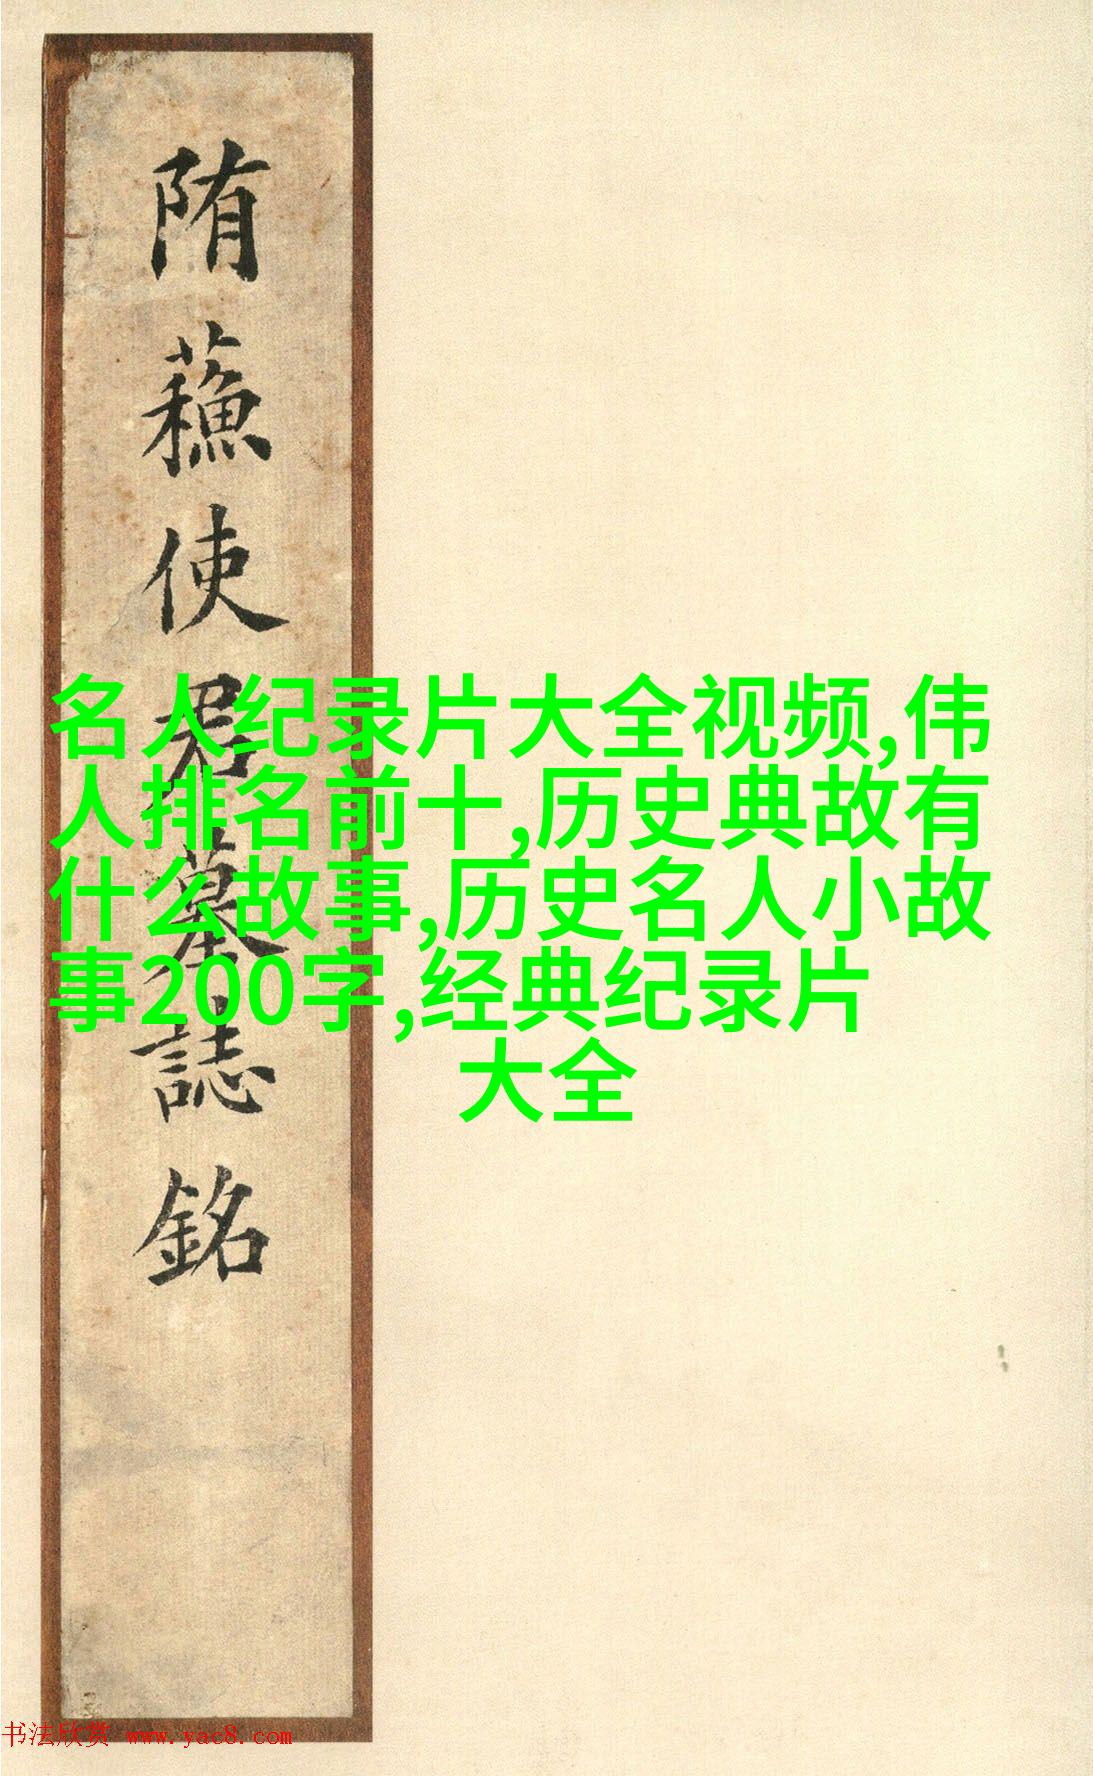 隋蘓使君墓誌銘
名人纪录片大全视频,伟
人排名前十,历史典故有
什么故事,历史名人小故
事200字,经典纪录片
大全
书法欣赏 www.yac8.com